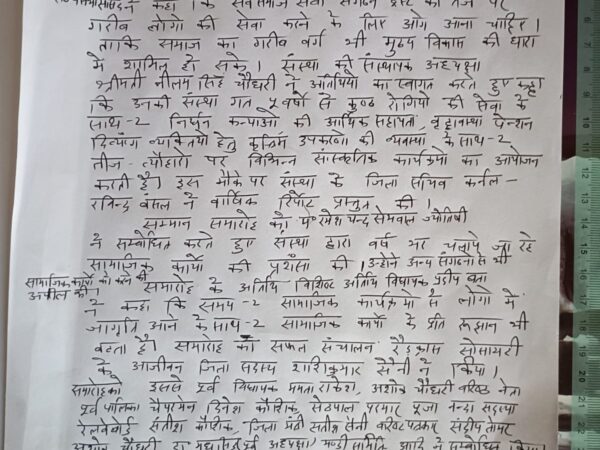 कहा कि सर्व समाज सेवा संगठन ट्रस्ट की तर्ज पर
गरीब लोगो की सेवा करने के लिए आगे आना चाहिए।
ताकि समाज का गरीब वर्ग भी मुख्य विकास की धारा
में शामिल हो सके। संस्था की संस्थापक अध्यक्षा
श्रीमती नीलम सिंह चौधरी ने अतिथियो का स्वागत करते हुए कहा
कि उनकी संस्था गत वर्षो से कुष्ठ रोगियो की सेवा के
साथ-2 निर्धन कन्याओ की आर्थिक सहायता, वृद्धावस्था पेन्शन
दिव्यांग व्यक्तियो हेतु कृत्रिम उपकरणो की व्यवस्था के साथ-2
तीज-त्यौहारो पर विभिन्न सांस्कृतिक कार्यक्रमो का आयोजन
करती है। इस मौके पर संस्था के जिला सचिव कर्नल-
रविन्द्र बंसल ने वार्षिक रिपोर्ट प्रस्तुत की।
सम्मान समारोह को पं रमेश चन्द्र सेमवाल ज्योतिषी
ने सम्बोधित करते हुए संस्था द्वारा वर्ष भर चलाये जा रहे
सामाजिक कार्यो की प्रशंसा की। उन्होने अन्य संगठनो से भी
सामाजिक कार्यो को करने की
अपील की।
समारोह के अतिथि विशिष्ट अतिथि विधायक प्रदीप बत्रा
ने कहा कि समय-2 सामाजिक कार्यक्रमो से लोगो में
जागृति आने के साथ-2 सामाजिक कार्यो के प्रति रूझान भी
बढता है। समारोह का सफल संचालन रैडक्रास सोसायटी
के आजीवन जिला सदस्य शशि कुमार सैनी ने किया।
समारोह को इससे पूर्व विधायक ममता राकेश, अशोक चौधरी वरिष्ठ नेता
पूर्व पालिका चैयरमेन दिनेश कौशिक, सेठपाल परमार पूजा नन्दा सदस्या
रेलवे बोर्ड सतीश कौशिक, जिला मंत्री सतीश सैनी वरिष्ठ पत्रकार संदीप तोमर
चौधरी डा पूर्व अध्यक्ष मण्डी समिति आदि ने सम्बोधित किया।